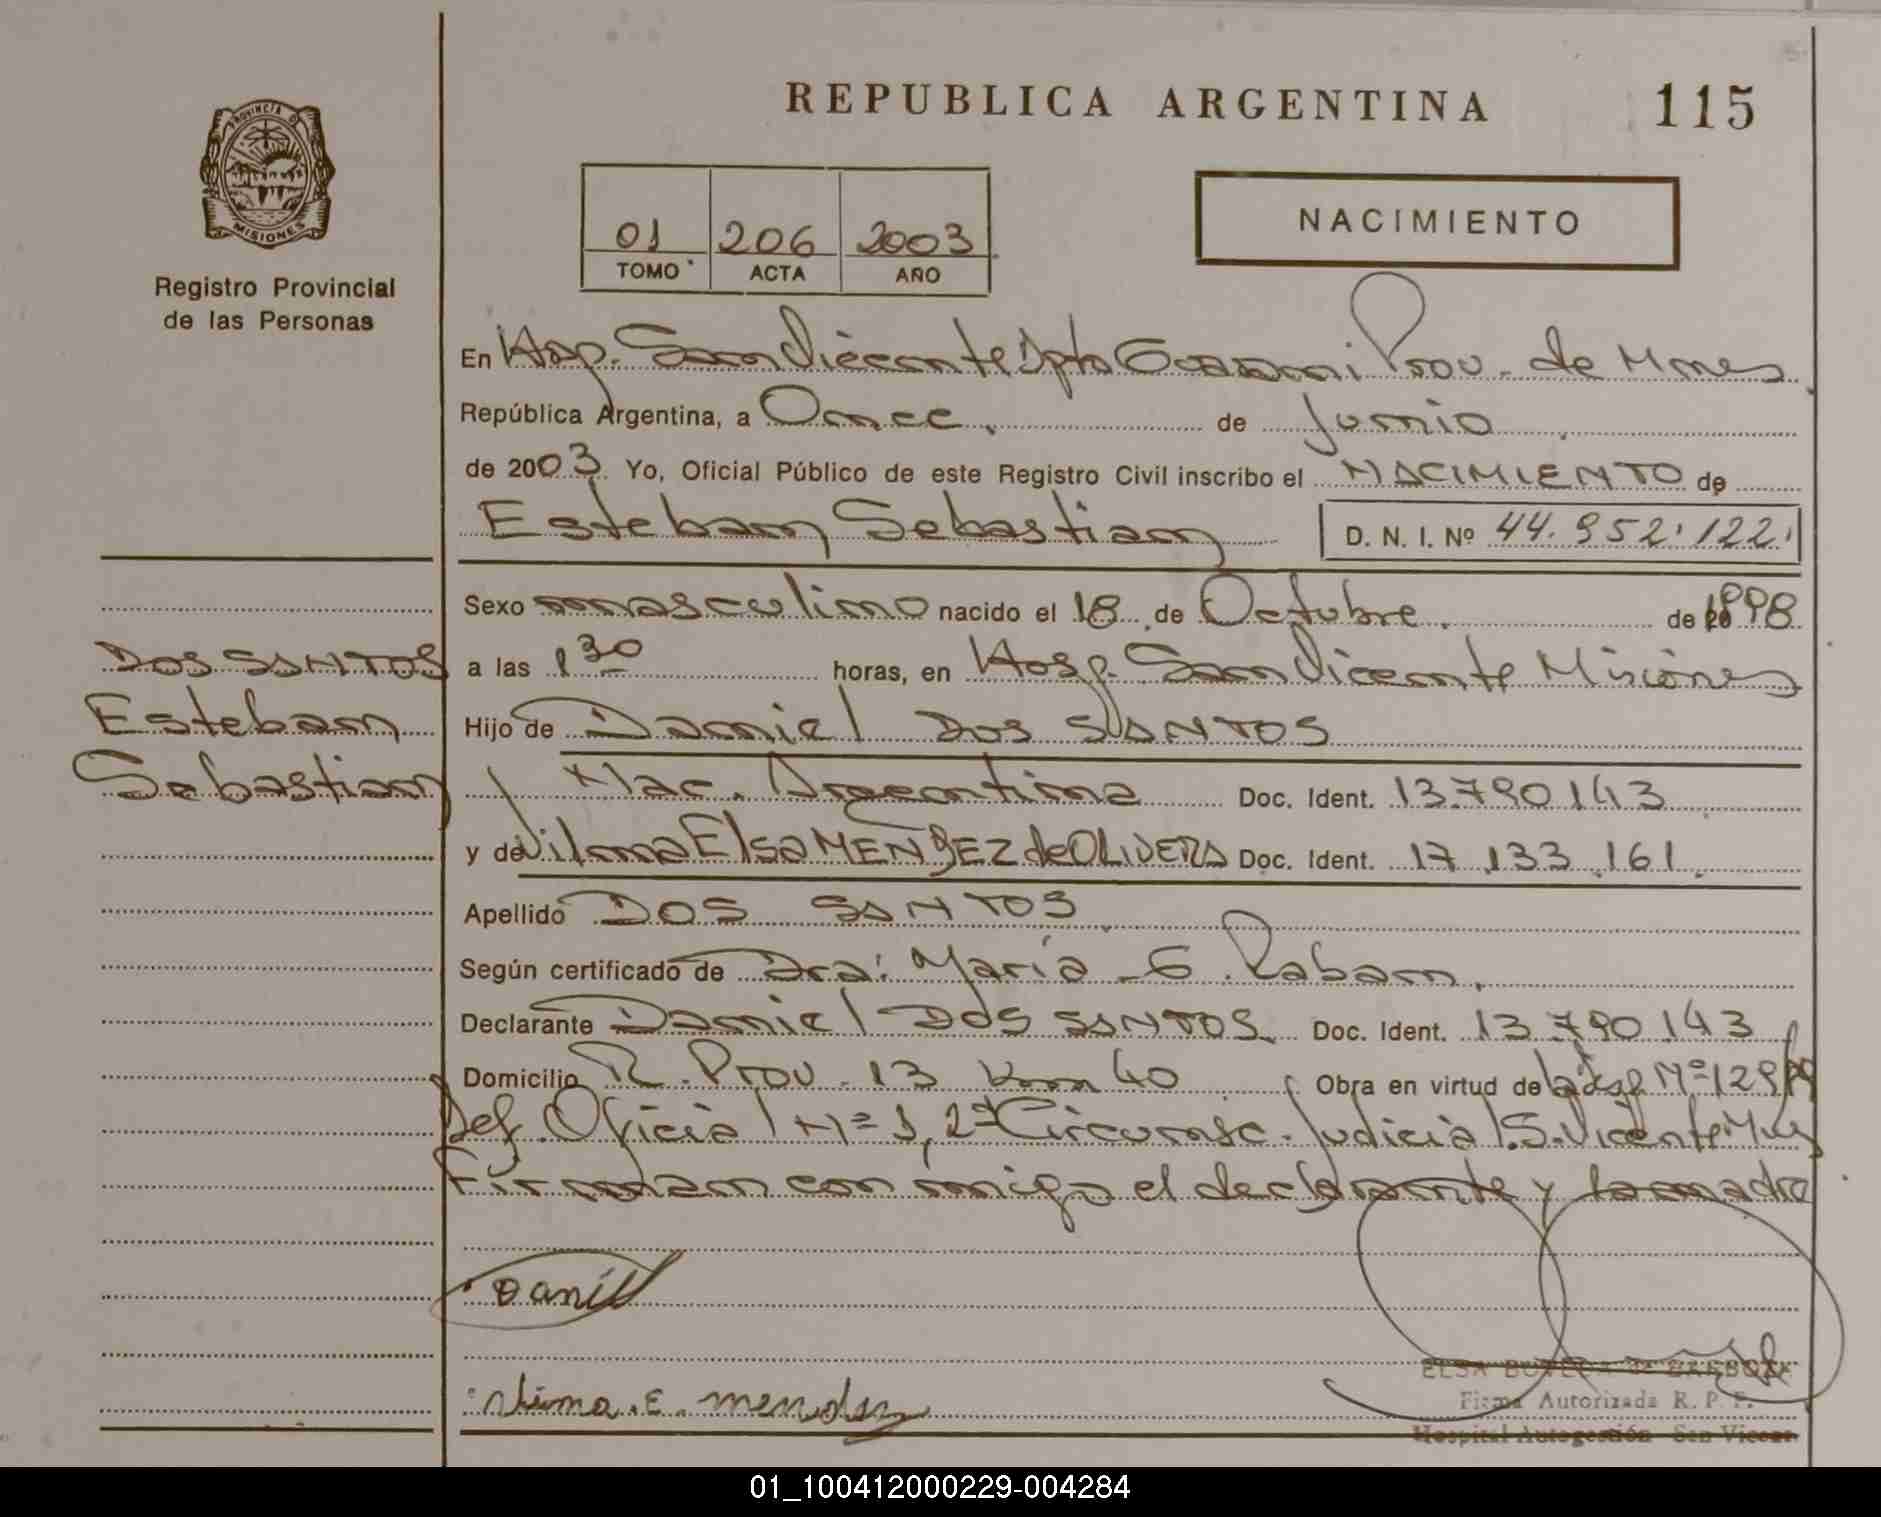 REPUBLICA ARGENTINA
115
PROVINCIA DE
MISIONES
Registro Provincial
de las Personas
01 206 2003
TOMO ACTA AÑO
NACIMIENTO
En Hosp. San Vicente Dpto Guarani Prov. de Mnes
República Argentina, a Once. de Junio
de 2003 Yo, Oficial Público de este Registro Civil inscribo el NACIMIENTO de
Esteban Sebastian D. N. I. Nº 44.952.122
Sexo masculino nacido el 18 de Octubre. de 1998
a las 1 30 horas, en Hosp. San Vicente Misiones
Hijo de Daniel DOS SANTOS
Nac. Argentina Doc. Ident. 13.790.143
y de Vilma Elsa MENDEZ de OLIVERA Doc. Ident. 17.133.161
Apellido DOS SANTOS
Según certificado de Dra. María E. Raban.
Declarante Daniel DOS SANTOS Doc. Ident. 13.790.143
Domicilio R. Prov. 13 Km 40 Obra en virtud de la Nº 129
Def. Oficial Nº 1, 2ª Circunsc. Judicial S. Vicente Mnes
Firman con migo el declarante y la madre
DOS SANTOS
Esteban
Sebastian
Daniel
Vilma. E. mendez
ELSA DE BARBOZA
Firma Autorizada R. P. P.
Hospital Autogestión San Vicente
01_100412000229-004284